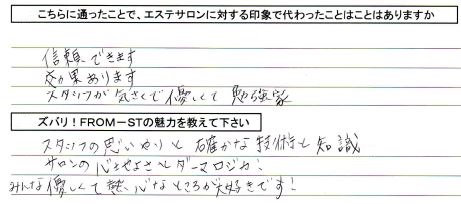 こちらに通ったことで、エステサロンに対する印象で代わったことはことはありますか
信頼できます
効果あります
スタッフが気さくで優しくて勉強家
ズバリ！FROM－STの魅力を教えて下さい
スタッフの思いやりと確かな技術と知識
サロンの心地よさとダーマロジカ！
みんな優しくて熱心なところが大好きです！